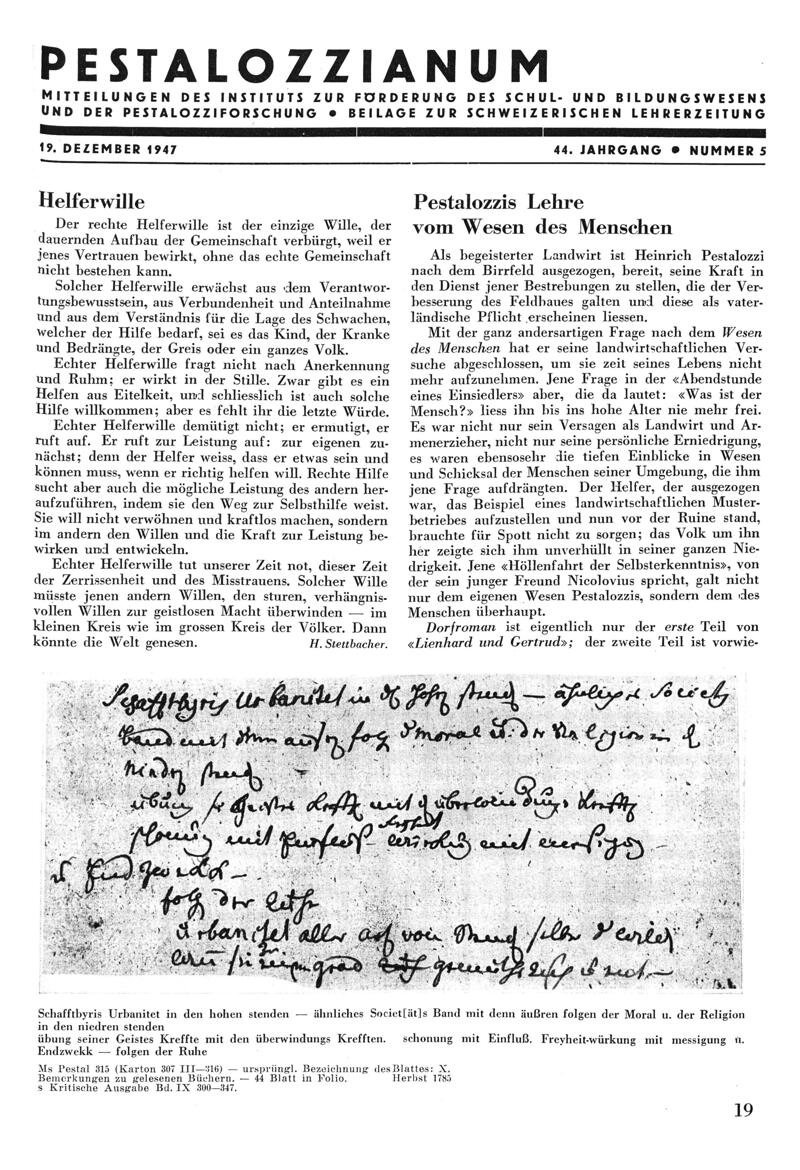 PESTALOZZIANUM
MITTEILUNGEN DES INSTITUTS ZUR FÖRDERUNG DES SCHUL- UND BILDUNGSWESENS
UND DER PESTALOZZIFORSCHUNG ● BEILAGE ZUR SCHWEIZERISCHEN LEHRERZEITUNG
19. DEZEMBER 1947 44. JAHRGANG ● NUMMER 5
Helferwille
Der rechte Helferwille ist der einzige Wille, der
dauernden Aufbau der Gemeinschaft verbürgt, weil er
jenes Vertrauen bewirkt, ohne das echte Gemeinschaft
nicht bestehen kann.
Solcher Helferwille erwächst aus dem Verantwor-
tungsbewusstsein, aus Verbundenheit und Anteilnahme
und aus dem Verständnis für die Lage des Schwachen,
welcher der Hilfe bedarf, sei es das Kind, der Kranke
und Bedrängte, der Greis oder ein ganzes Volk.
Echter Helferwille fragt nicht nach Anerkennung
und Ruhm; er wirkt in der Stille. Zwar gibt es ein
Helfen aus Eitelkeit, und schliesslich ist auch solche
Hilfe willkommen; aber es fehlt ihr die letzte Würde.
Echter Helferwille demütigt nicht; er ermutigt, er
ruft auf. Er ruft zur Leistung auf: zur eigenen zu-
nächst; denn der Helfer weiss, dass er etwas sein und
können muss, wenn er richtig helfen will. Rechte Hilfe
sucht aber auch die mögliche Leistung des andern her-
aufzuführen, indem sie den Weg zur Selbsthilfe weist.
Sie will nicht verwöhnen und kraftlos machen, sondern
im andern den Willen und die Kraft zur Leistung be-
wirken und entwickeln.
Echter Helferwille tut unserer Zeit not, dieser Zeit
der Zerrissenheit und des Misstrauens. Solcher Wille
müsste jenen andern Willen, den sturen, verhängnis-
vollen Willen zur geistlosen Macht überwinden — im
kleinen Kreis wie im grossen Kreis der Völker. Dann
könnte die Welt genesen. H. Stettbacher.
Pestalozzis Lehre
vom Wesen des Menschen
Als begeisterter Landwirt ist Heinrich Pestalozzi
nach dem Birrfeld ausgezogen, bereit, seine Kraft in
den Dienst jener Bestrebungen zu stellen, die der Ver-
besserung des Feldbaues galten und diese als vater-
ländische Pflicht erscheinen liessen.
Mit der ganz andersartigen Frage nach dem Wesen
des Menschen hat er seine landwirtschaftlichen Ver-
suche abgeschlossen, um sie zeit seines Lebens nicht
mehr aufzunehmen. Jene Frage in der «Abendstunde
eines Einsiedlers» aber, die da lautet: «Was ist der
Mensch?» liess ihn bis ins hohe Alter nie mehr frei.
Es war nicht nur sein Versagen als Landwirt und Ar-
menerzieher, nicht nur seine persönliche Erniedrigung,
es waren ebensosehr die tiefen Einblicke in Wesen
und Schicksal der Menschen seiner Umgebung, die ihm
jene Frage aufdrängten. Der Helfer, der ausgezogen
war, das Beispiel eines landwirtschaftlichen Muster-
betriebes aufzustellen und nun vor der Ruine stand,
brauchte für Spott nicht zu sorgen; das Volk um ihn
her zeigte sich ihm unverhüllt in seiner ganzen Nie-
drigkeit. Jene «Höllenfahrt der Selbsterkenntnis», von
der sein junger Freund Nicolovius spricht, galt nicht
nur dem eigenen Wesen Pestalozzis, sondern dem des
Menschen überhaupt.
Dorfroman ist eigentlich nur der erste Teil von
«Lienhard und Gertrud»; der zweite Teil ist vorwie-
Schafftbyris Urbanitet in den hohen stenden — ähnliches Societ[ät]s Band mit denn äußren folgen der Moral u. der Religion
in den niedren stenden
übung seiner Geistes Kreffte mit den überwindungs Krefften. schonung mit Einfluß. Freyheit-würkung mit messigung u.
Endzwekk — folgen der Ruhe
Ms Pestal 315 (Karton 307 III—316) — ursprüngl. Bezeichnung des Blattes: X.
Bemerkungen zu gelesenen Büchern. — 44 Blatt in Folio. Herbst 1785
s Kritische Ausgabe Bd. IX 300—347.
19